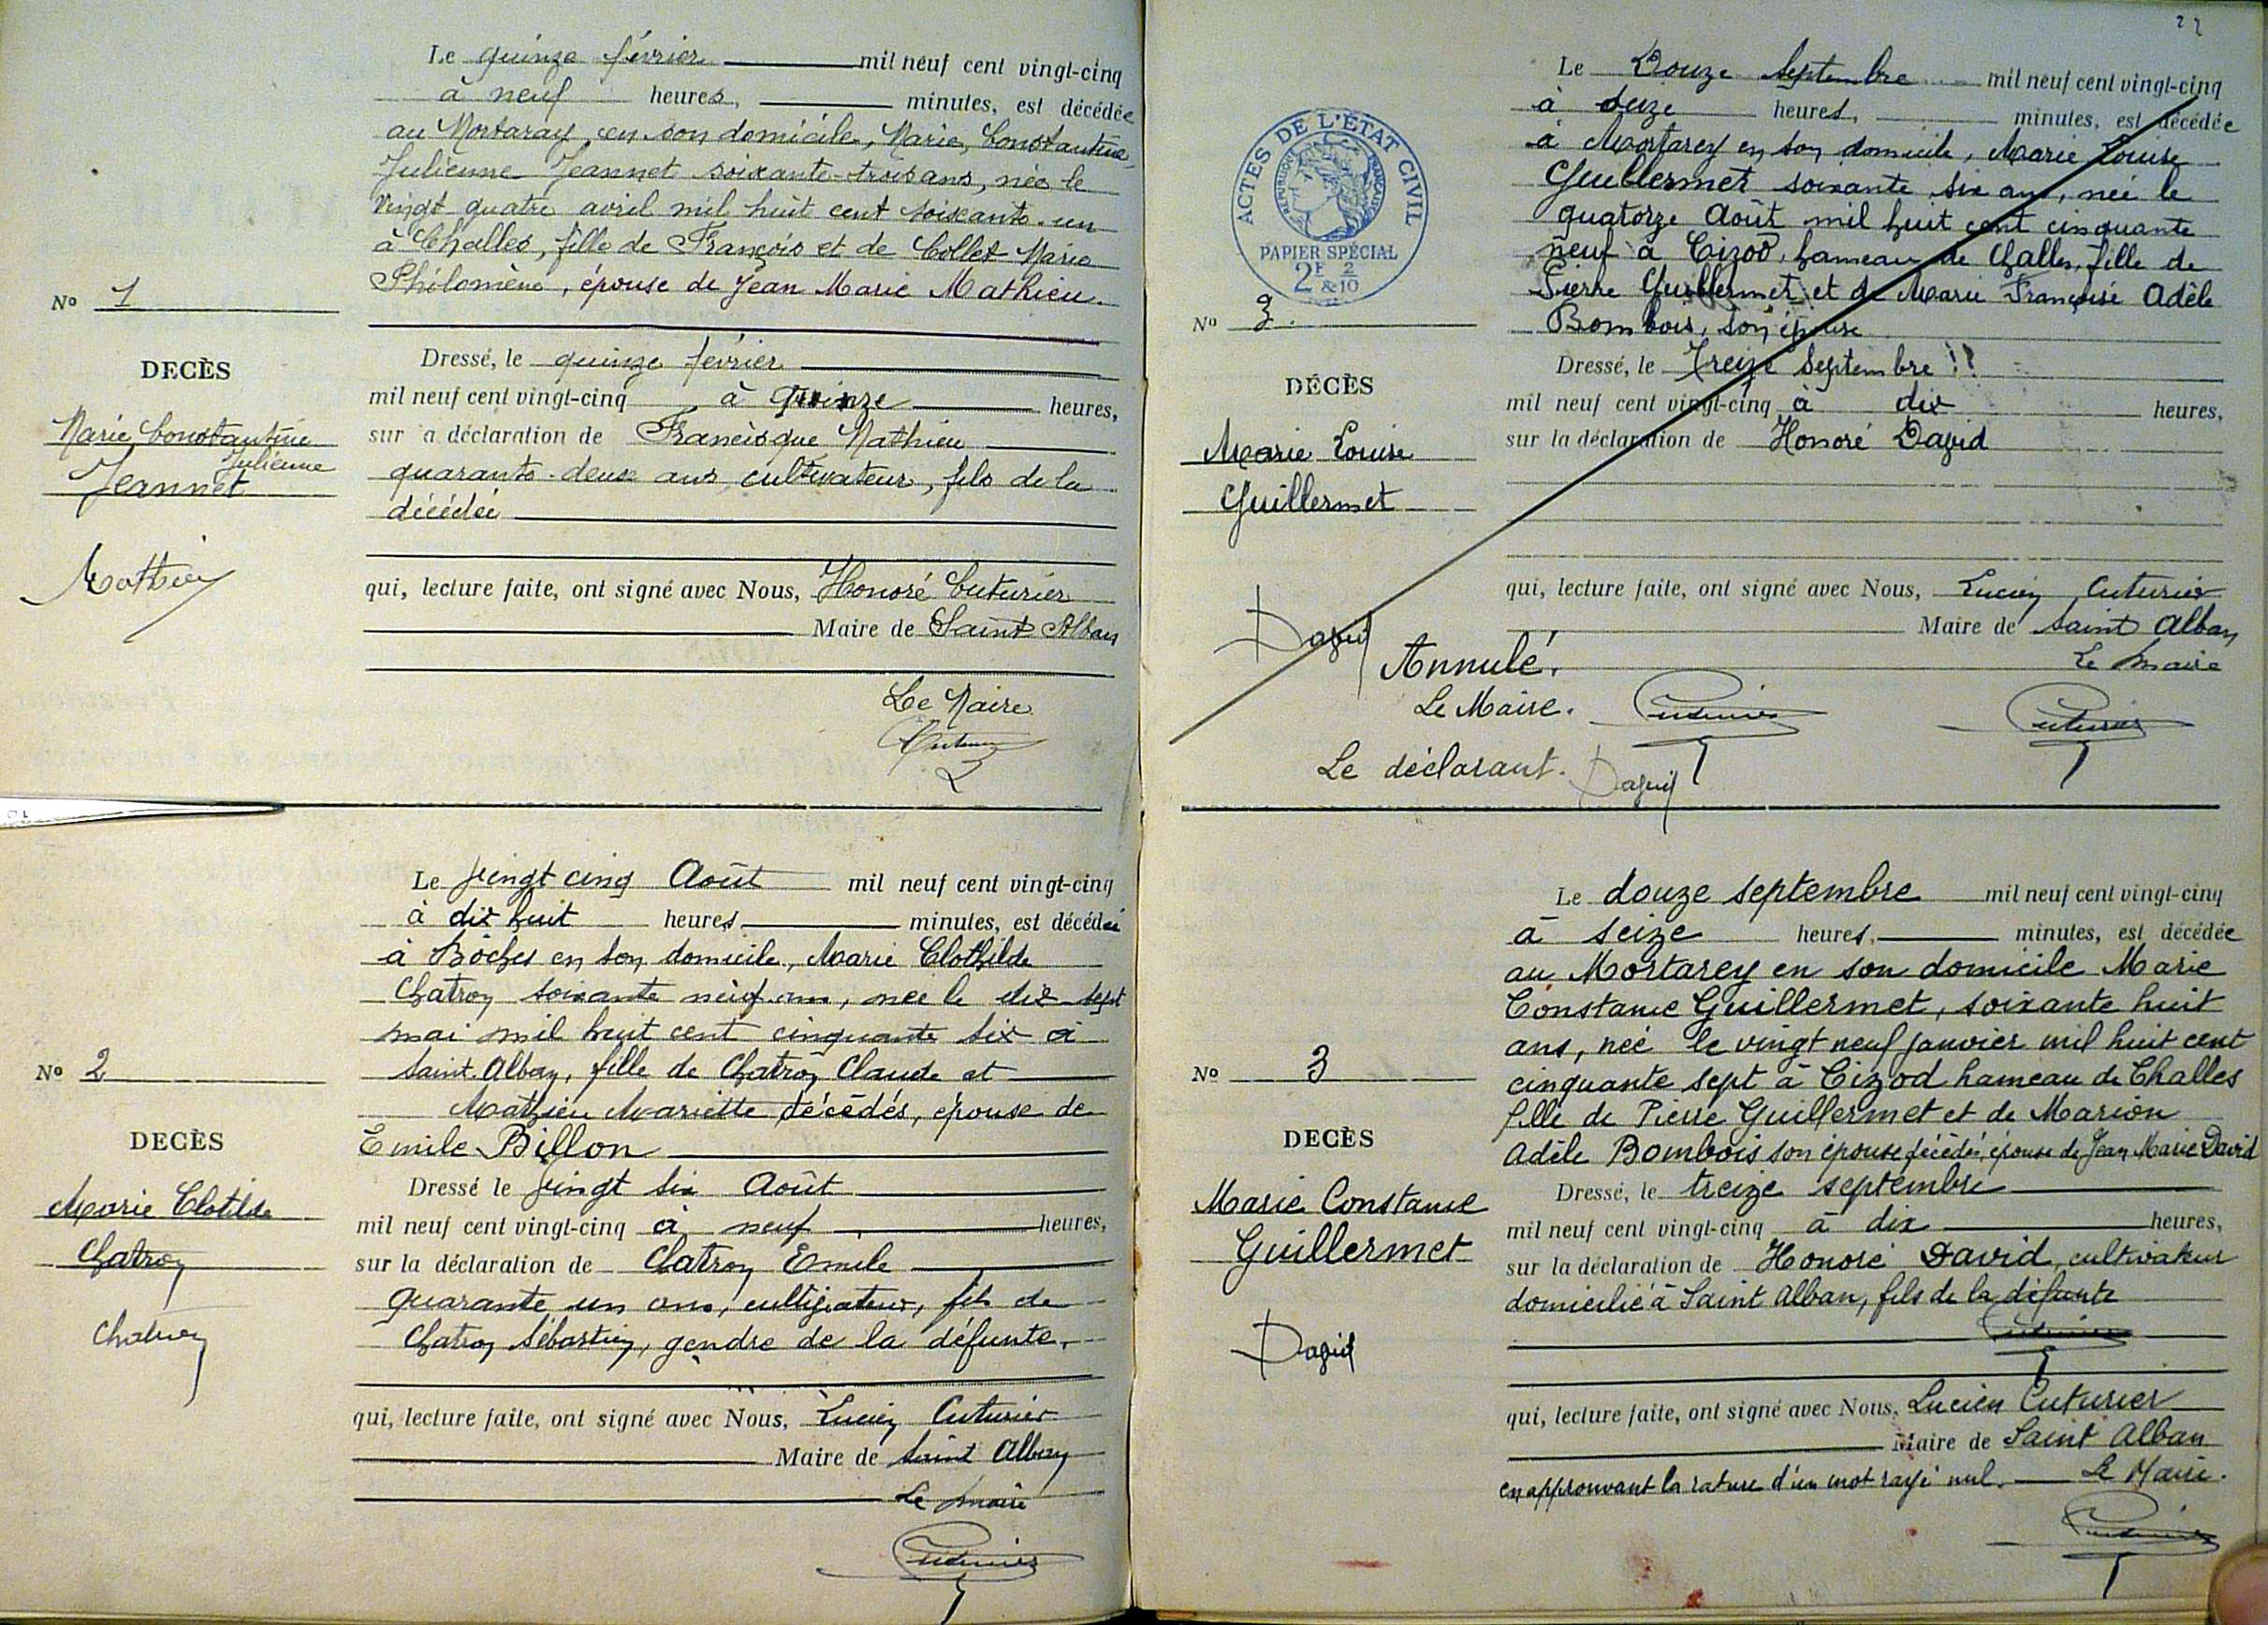 Le quinze février mil neuf cent vingt-cinq
à neuf heures, minutes, est décédée
au Mortaray, en son domicile, Marie, Constantine
Julienne Jeannet soixante-trois ans, née le
vingt quatre avril mil huit cent soixante-un
à Challes, fille de François et de Collet Marie
Philomène, épouse de Jean Marie Mathieu.
No 1
Dressé, le quinze février
DECÈS
mil neuf cent vingt-cinq à quinze heures,
Marie Constantine
Julienne
Jeannet
sur a déclaration de Francisque Mathieu
quarante-deux ans, cultivateur, fils de la
décédée
Mathieu
qui, lecture faite, ont signé avec Nous, Honoré Cuturier
Maire de Saint Alban
Le Maire
Cuturier
Le vingt cinq Août mil neuf cent vingt-cinq
à dix huit heures minutes, est décédée
à Bôches en son domicile, Marie Clothilde
Chatron soixante neuf ans, née le dix sept
mai mil huit cent cinquante six à
Saint Alban, fille de Chatron Claude et
No 2
Mathieu Mariette décédés, épouse de
Emile Billon
DECÈS
Dressé le vingt six Août
Marie Clotilde
Chatron
mil neuf cent vingt-cinq à neuf heures,
sur la déclaration de Chatron Emile
quarante un ans, cultivateur, fils de
Chatron Sébastien, gendre de la défunte.
Chatron
qui, lecture faite, ont signé avec Nous, Lucien Cuturier
Maire de Saint Alban
Le Maire
Cuturier
Le Douze Septembre mil neuf cent vingt-cinq
à seize heures, minutes, est décédée
à Mortarey en son domicile, Marie Louise
Guillermet soixante six ans, née le
quatorze Août mil huit cent cinquante
neuf à Cizod, hameau de Challes, fille de
Pierre Guillermet et de Marie Françoise Adèle
Bombois, son épouse
ACTES DE L'ÉTAT CIVIL
RÉPUBLIQUE FRANÇAISE
PAPIER SPÉCIAL
2F 2/10
&
No 3.
DÉCÈS
Marie Louise
Guillermet
Dressé, le Treize Septembre
mil neuf cent vingt-cinq à dix heures,
sur la déclaration de Honoré David
qui, lecture faite, ont signé avec Nous, Lucien Cuturier
Maire de Saint Alban
Le Maire
David
Annulé.
Le Maire. Cuturier
Cuturier
Le déclarant. David
Le douze septembre mil neuf cent vingt-cinq
à seize heures, minutes, est décédée
au Mortarey en son domicile Marie
Constance Guillermet, soixante huit
ans, née le vingt neuf janvier mil huit cent
cinquante sept à Cizod hameau de Challes
fille de Pierre Guillermet et de Marion
Adèle Bombois son épouse décédés, épouse de Jean Marie David
No 3
DECÈS
Marie Constance
Guillermet
Dressé, le treize septembre
mil neuf cent vingt-cinq à dix heures,
sur la déclaration de Honoré David, cultivateur
domicilié à Saint Alban, fils de la défunte
Cuturier
David
qui, lecture faite, ont signé avec Nous, Lucien Cuturier
Maire de Saint Alban
en approuvant la rature d'un mot rayé nul. Le Maire.
Cuturier